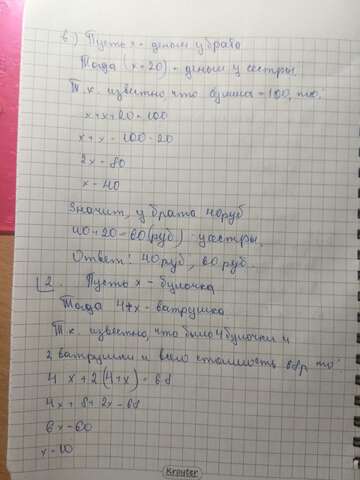 в) Пусть x - деньги у брата
Тогда (x+20) - деньги у сестры.
Т.к. известно что сумма = 100, то:
x+x+20=100
x+x=100-20
2x=80
x=40
Значит, у брата 40 руб
40+20=60(руб) - у сестры.
Ответ: 40 руб, 60 руб.
2. Пусть x - булочка
Тогда 4+x - ватрушка
Т.к. известно, что было 4 булочки и
2 ватрушки и всего стоимость 68р то:
4 x+2(4+x)=68
4x+8+2x=68
6x=60
x=10
Kroyter